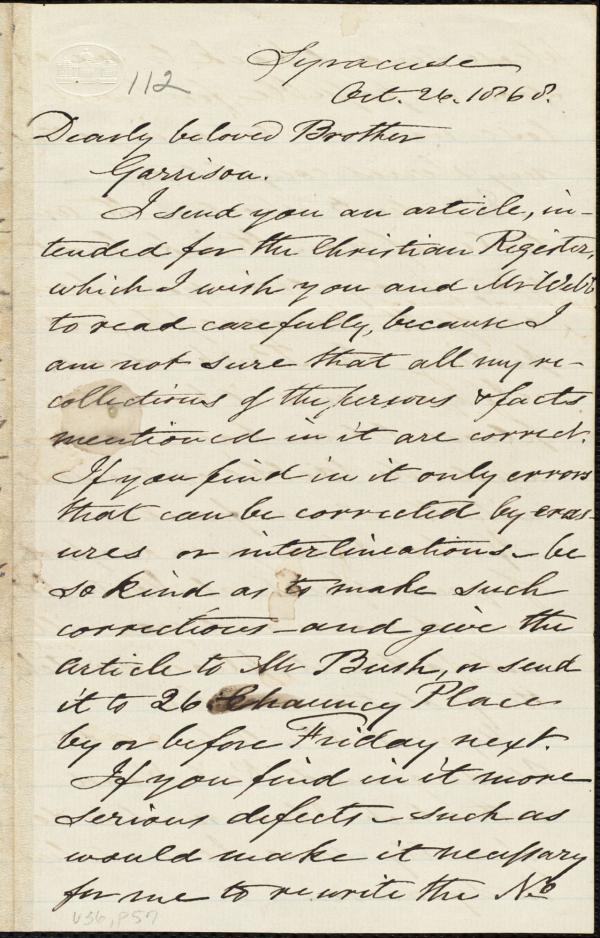 112
Syracuse
Oct. 26. 1868.
Dearly beloved Brother
Garrison.
I send you an article, in-
tended for the Christian Register,
which I wish you and Mr Webb
to read carefully, because I
am not sure that all my re-
collections of the persons & facts
mentioned in it are correct.
If you find in it only errors
that can be corrected by eras-
ures or interlineations - be
so kind as to make such
corrections - and give the
article to Mr Bush, or send
it to 26 Chauncy Place
by or before Friday next.
If you find in it more
serious defects - such as
would make it necessary
for me to rewrite the No
v36, p57